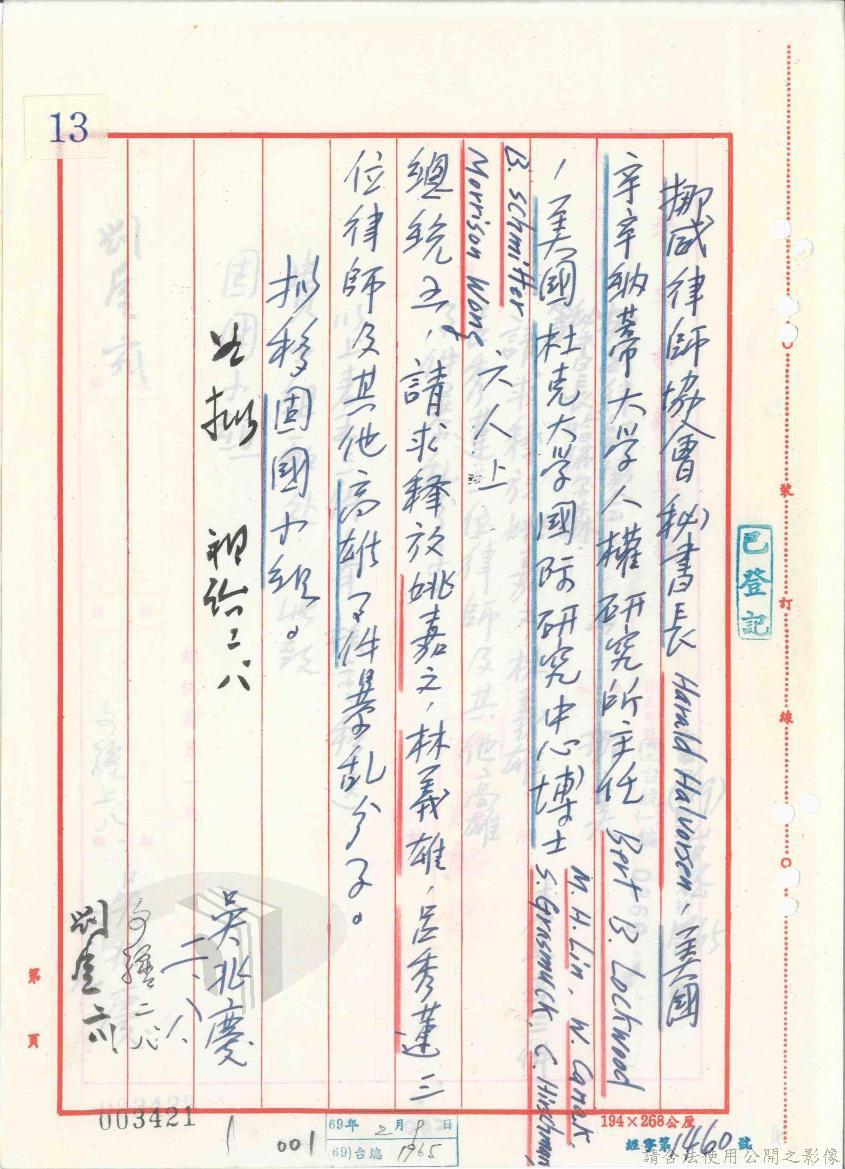 13
挪威律師協會秘書長 Harald Halvorsen，美國
辛辛納蒂大学人權研究所主任 Bert B. Lockwood
，美國杜克大学國际研究中心博士 M. H. Lin. W. Canak.
S. Grasmuck. C. Hirschman
B. Schmitter
Morrison Wong 六人上
總統函，請求釋放姚嘉文，林義雄，呂秀蓮三
位律師及其他高雄事件暴乱分子。
擬移固國小組。
如擬
二八
吳兆慶
二、八、
二八
劉
已登記
裝
訂
線
第
頁
003421
001
69年2月9日
(69)台總 1965
194×268公厘
經字第1460號
請合法使用公開之影像